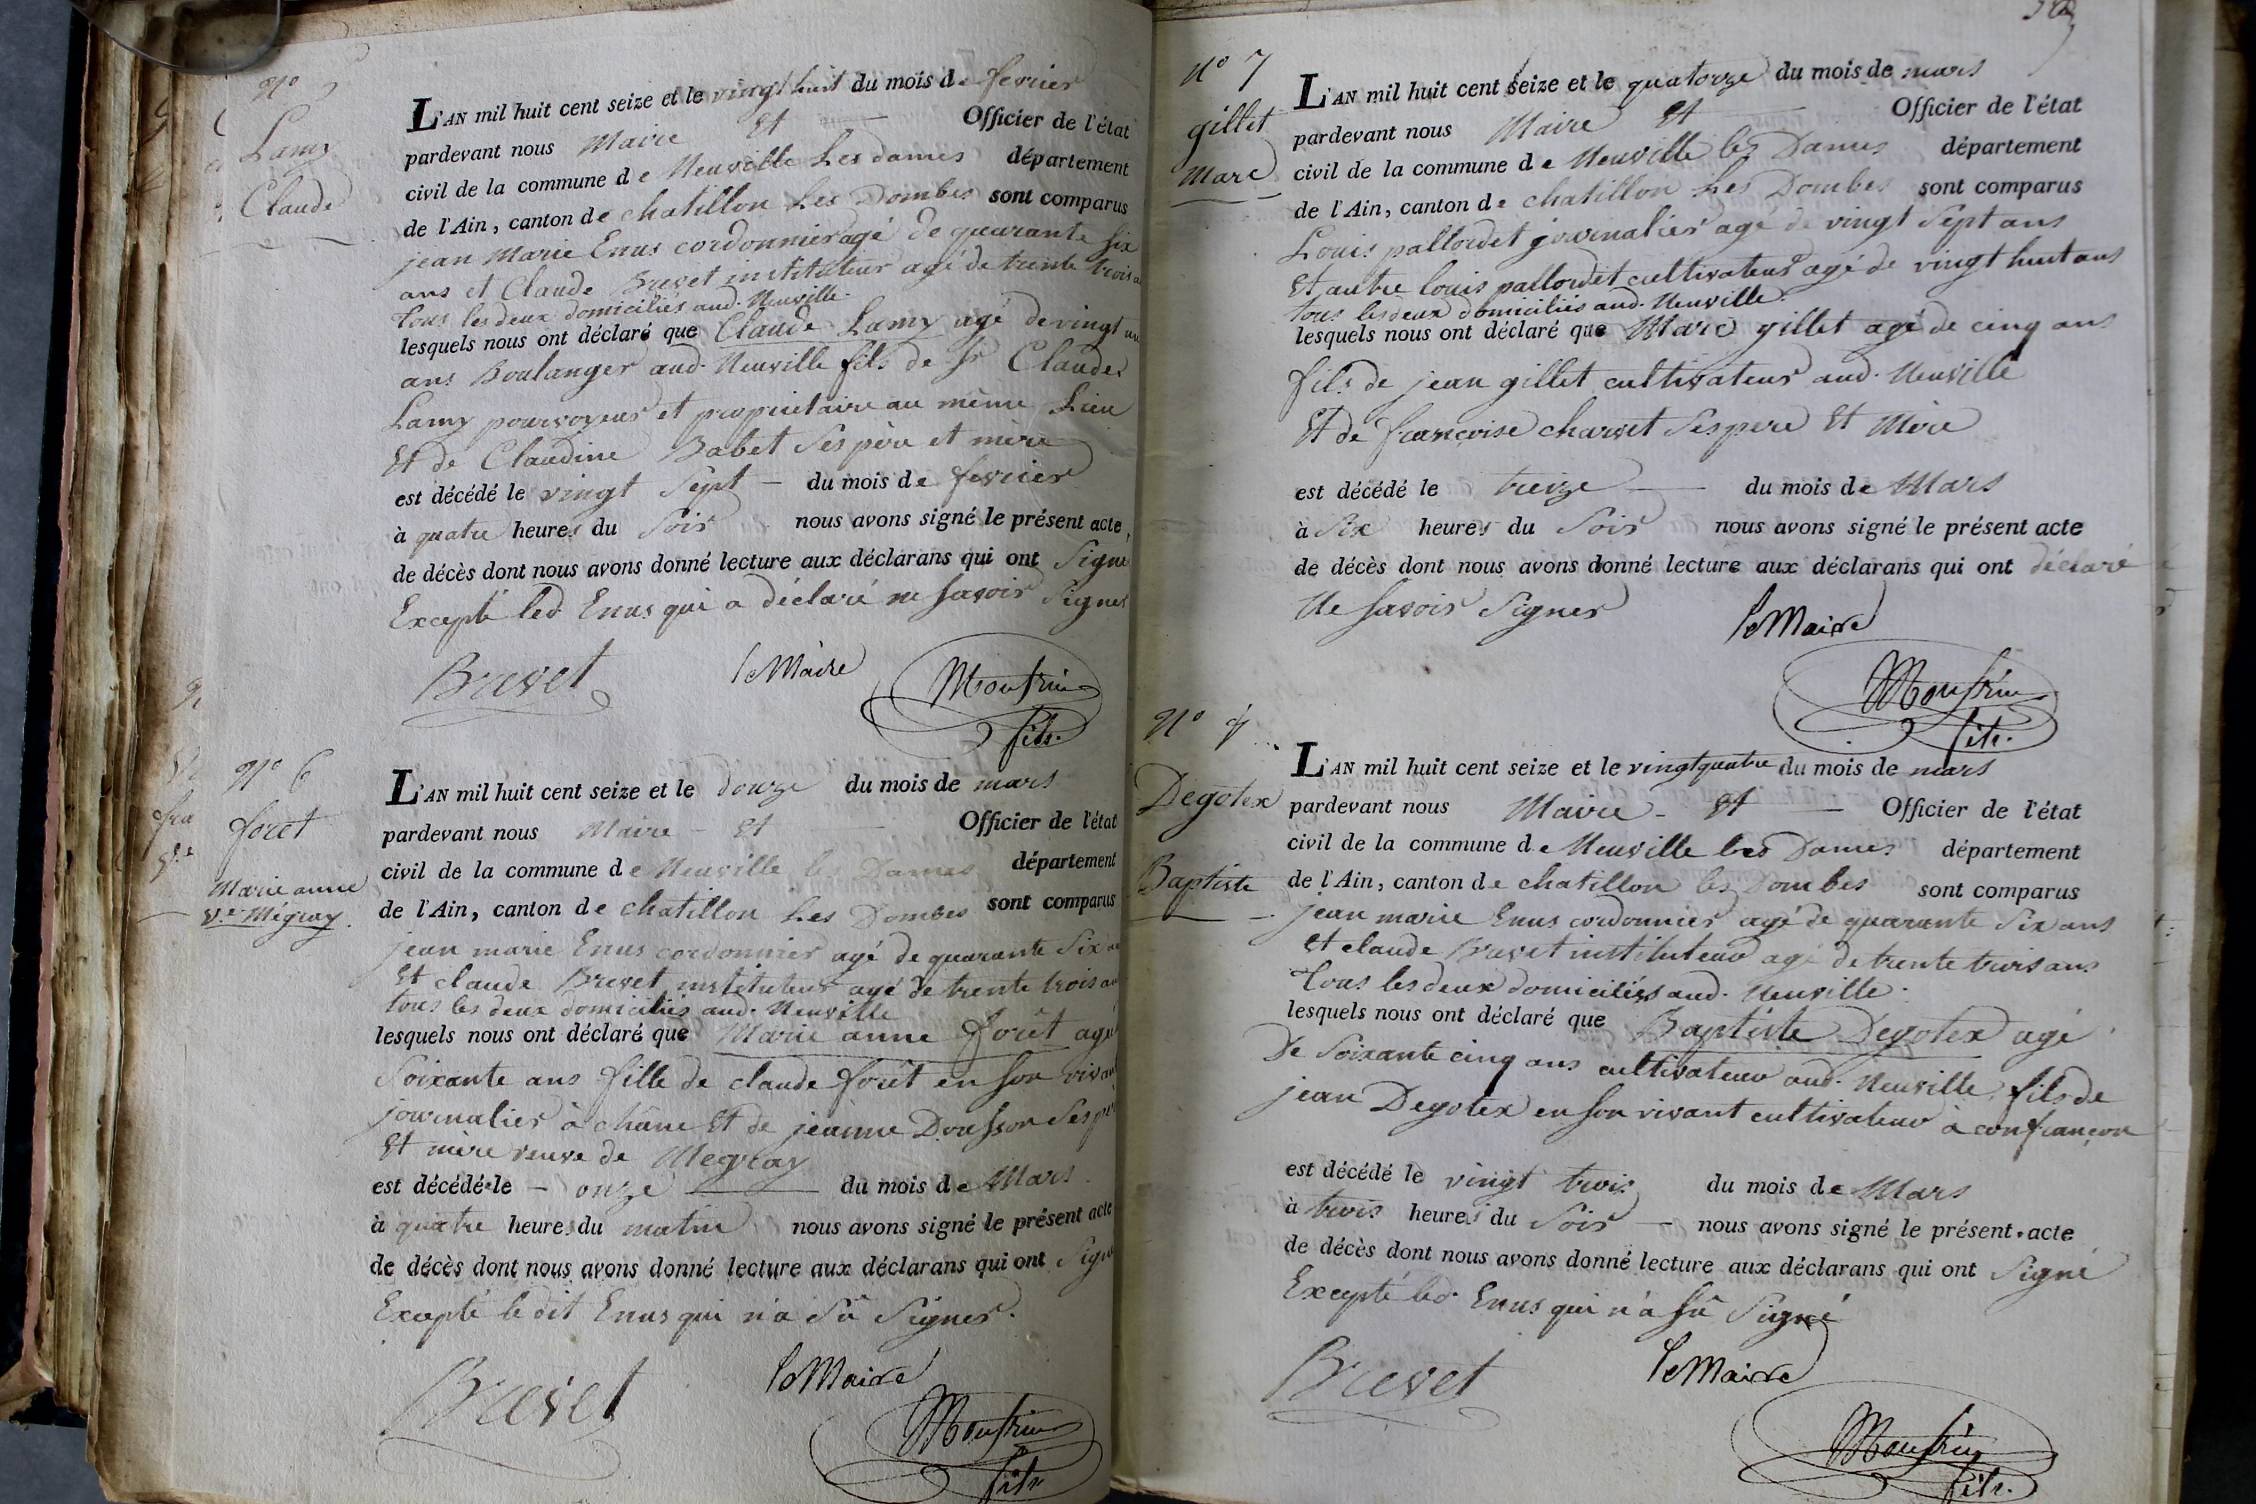 N°
Lamy
Claude
L'AN mil huit cent seize et le vingt huit du mois de fevrier
pardevant nous Maire et Officier de l'état
civil de la commune de Neuville Les dames département
de l'Ain, canton de chatillon Les Dombes sont comparus
jean Marie Enus cordonnier agé de quarante six
ans et Claude Brevet instituteur agé de trente trois
tous les deux domiciliés aud. Neuville.
lesquels nous ont déclaré que Claude Lamy agé de vingt
ans Boulanger aud. Neuville fils de Sr Claude
Lamy pourvoyeur et propriétaire au même Lieu
Et de Claudine Babet Ses père et mère
est décédé le vingt Sept du mois de fevrier
à quatre heures du Soir nous avons signé le présent acte,
de décès dont nous avons donné lecture aux déclarans qui ont Signé
Excepté led Enus qui a déclaré ne Savoir Signer
Brevet le Maire Monfrin
fils.
N° 6
foret
Marie anne
Ve Mégray.
L'AN mil huit cent seize et le douze du mois de mars
pardevant nous Maire - et Officier de l'état
civil de la commune de Neuville les Dames département
de l'Ain, canton de chatillon Les Dombes sont comparus
jean marie Enus cordonnier agé de quarante Six
Et claude Brevet instituteur agé de trente trois
tous les deux domiciliés aud. Neuville
lesquels nous ont déclaré que Marie anne forêt agé
Soixante ans fille de claude forêt en Son vivant
journalier à châne Et de jeanne Dousson Ses
Et mère veuve de Megray
est décédé le - onze du mois de Mars
à quatre heures du matin nous avons signé le présent acte
de décès dont nous avons donné lecture aux déclarans qui ont Signé
Excepté le dit Enus qui n'a Sû Signer.
Brevet le Maire
Monfrin
fils
N° 7
gillet
Marc
L'AN mil huit cent seize et le quatorze du mois de mars
pardevant nous Maire et Officier de l'état
civil de la commune de Neuville les Dames département
de l'Ain, canton de chatillon Les Dombes sont comparus
Louis pallordet journalier agé de vingt Sept ans
Et autre louis pallordet cultivateur agé de vingt huit ans
tous les deux domiciliés aud. Neuville.
lesquels nous ont déclaré que Marc gillet agé de cinq ans
fils de jean gillet cultivateur aud. Neuville
Et de françoise charvet Ses pere Et Mère
est décédé le treize du mois de Mars
à Six heures du Soir nous avons signé le présent acte
de décès dont nous avons donné lecture aux déclarans qui ont déclaré
Ne Savoir Signer le Maire
Monfrin
fils.
N°
Degotex
Baptiste
L'AN mil huit cent seize et le vingt quatre du mois de mars
pardevant nous Maire - et Officier de l'état
civil de la commune de Neuville les Dames département
de l'Ain, canton de chatillon les Dombes sont comparus
jean marie Enus cordonnier agé de quarante Six ans
Et claude Brevet instituteur agé de trente trois ans
tous les deux domiciliés aud. Neuville.
lesquels nous ont déclaré que Baptiste Degotex agé
De Soixante cinq ans cultivateur aud. Neuville, fils de
jean Degotex en Son vivant cultivateur à confrançon
est décédé le vingt trois du mois de Mars
à trois heures du Soir - nous avons signé le présent acte
de décès dont nous avons donné lecture aux déclarans qui ont Signé
Excepté led. Enus qui n'a Sû Signé
Brevet le Maire
Monfrin
fils.